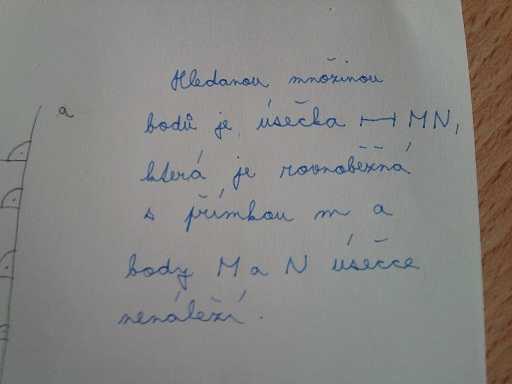 Hledanou množinou
a
bodů je úsečka ⊢⊣ MN,
která je rovnoběžná
s přímkou m a
body M a N úsečce
nenáleží.